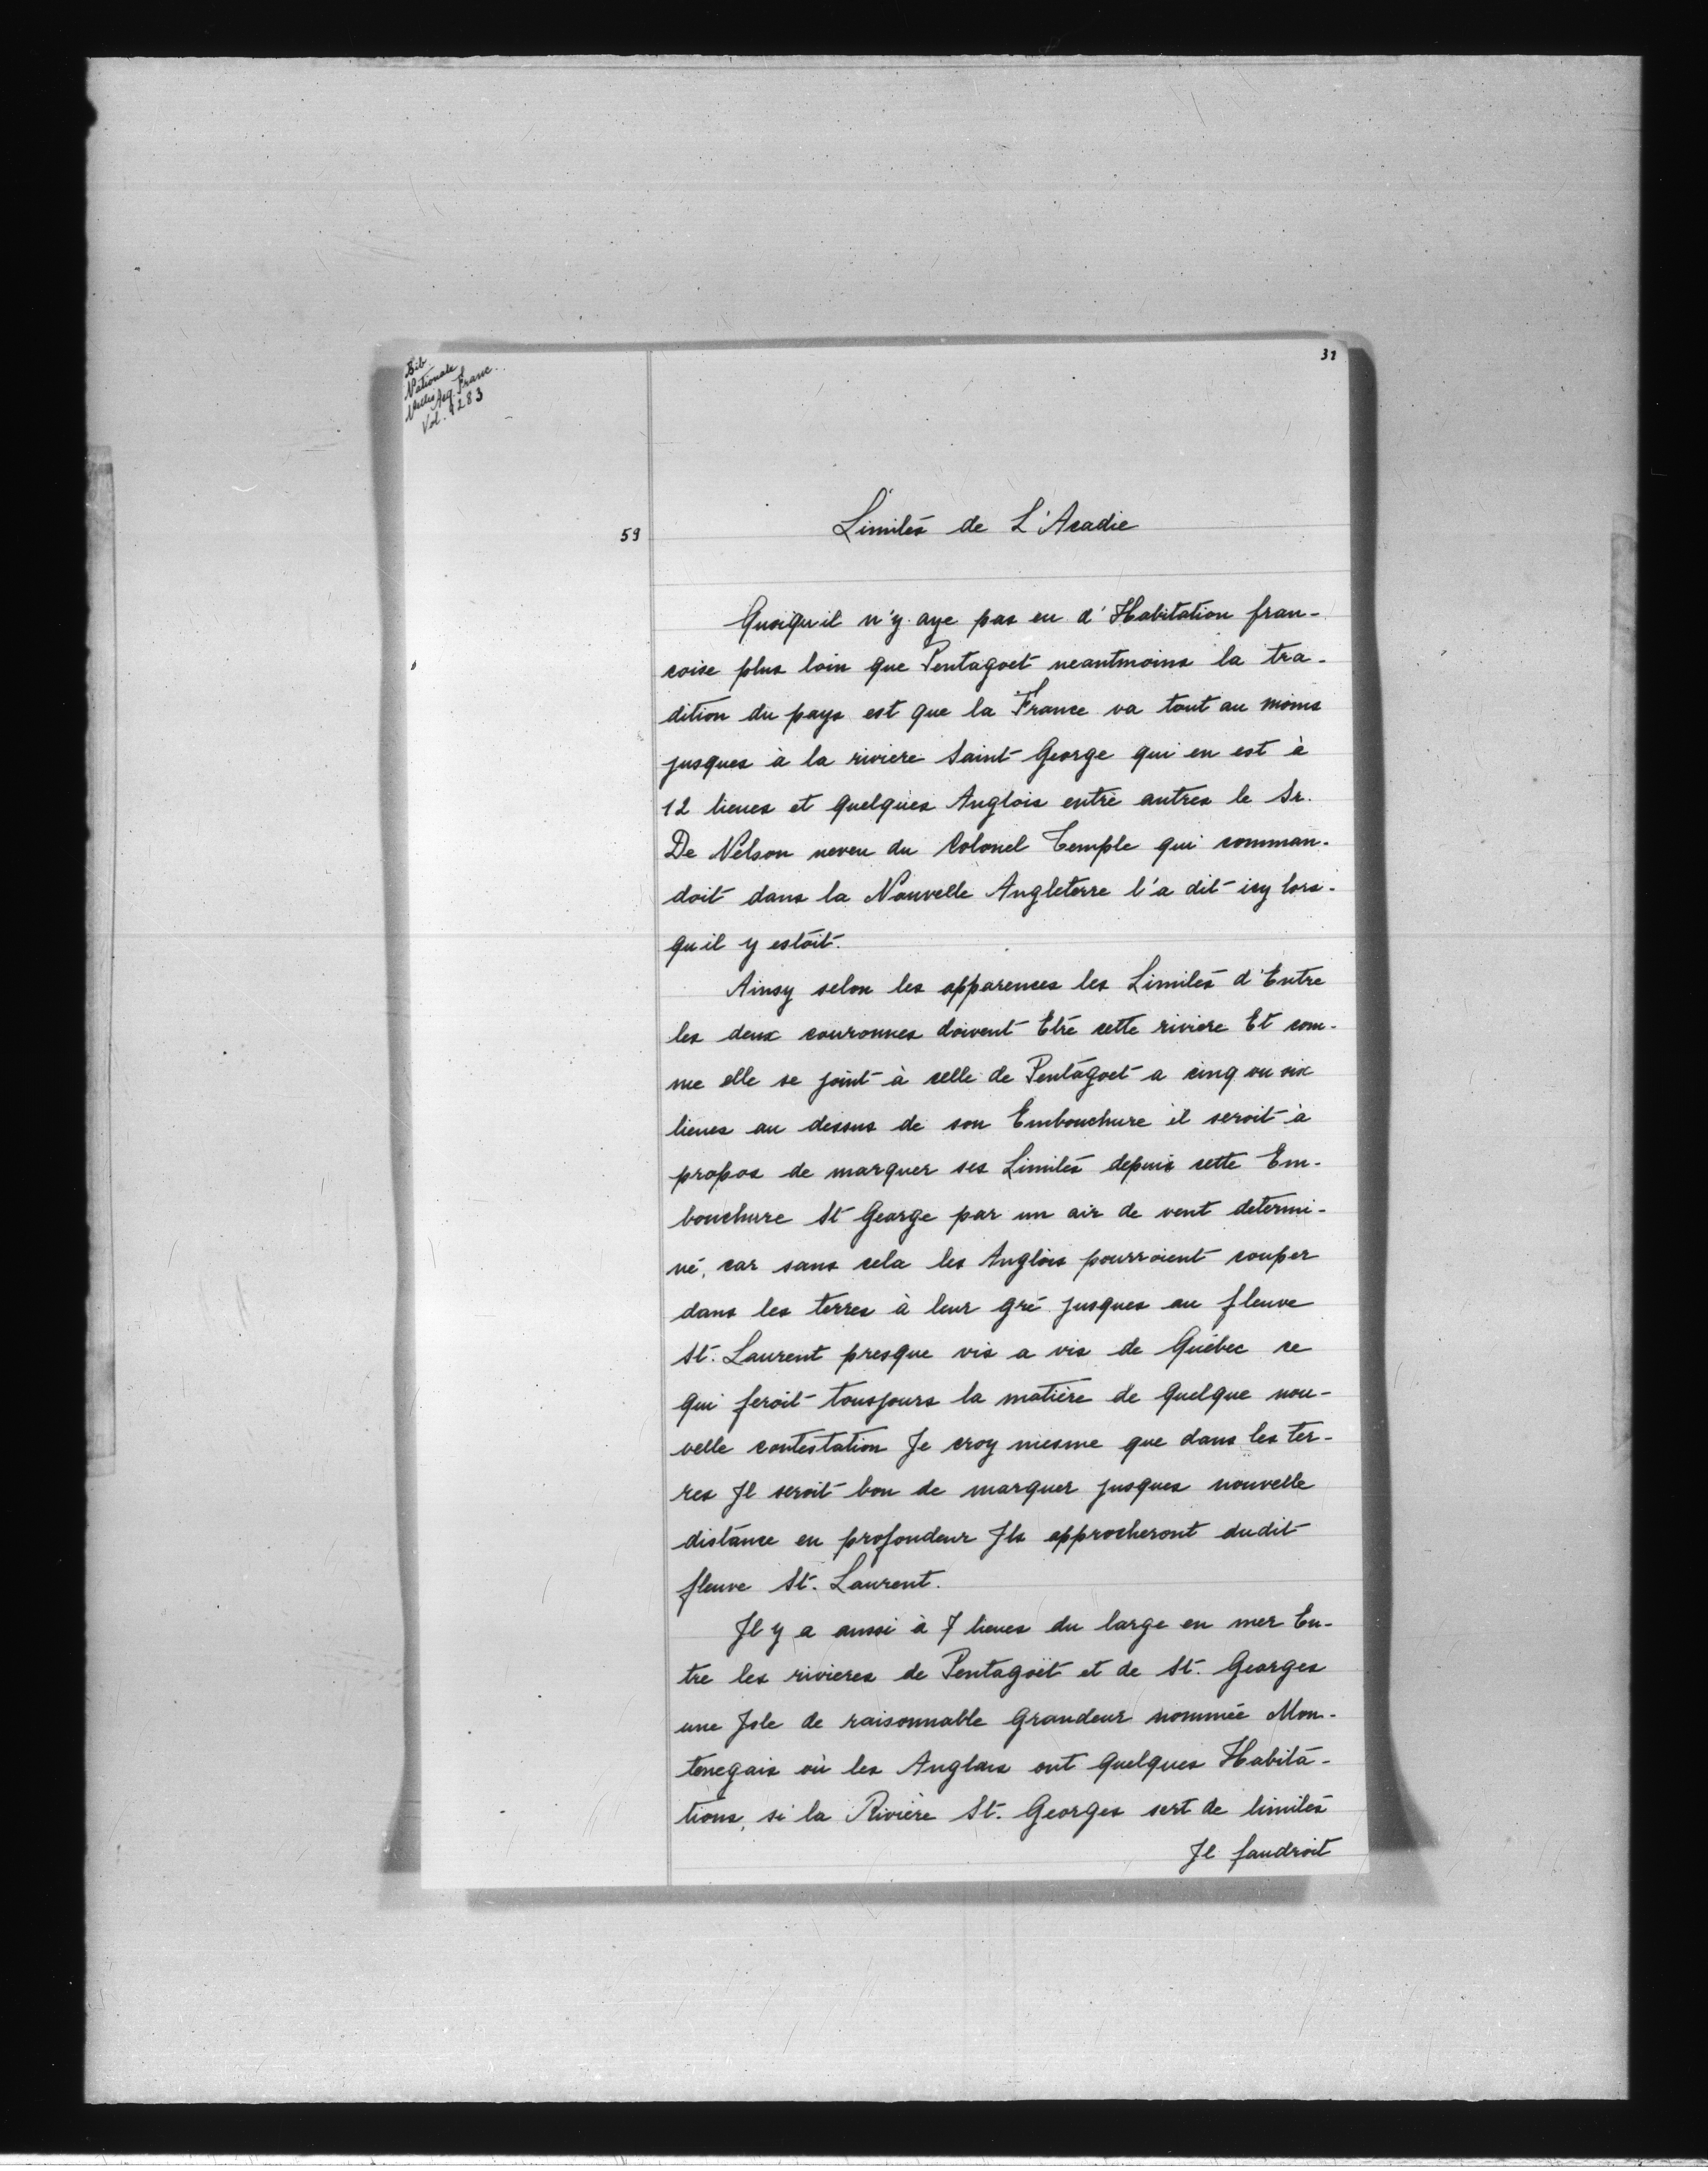 Bib
Nationale
Nelles Acq. Franc.
Vol. 9283
31
59
Limites de L'Acadie
Quoiqu'il n'y aye pas eu d'Habitation fran-
coise plus loin que Pentagoet neantmoins la tra-
dition du pays est que la France va tout au moins
jusques à la riviere Saint George qui en est à
12 lieues et quelques Anglois entre autres le Sr.
De Nelson neveu du Colonel Temple qui comman-
doit dans la Nouvelle Angleterre l'a dit icy lors-
qu'il y estoit.
Ainsy selon les apparences les Limites d'Entre
les deux couronnes doivent Etre cette riviere Et com-
me elle se joint à celle de Pentagoet a cinq ou six
lieues au dessus de son Embouchure il seroit à
propos de marquer ses Limites depuis cette Em-
bouchure St George par un air de vent determi-
né, car sans cela les Anglois pourroient couper
dans les terres à leur gré jusques au fleuve
St. Laurent presque vis a vis de Québec ce
qui feroit tousjours la matière de quelque nou-
velle contestation Je croy mesme que dans les ter-
res Jl seroit bon de marquer jusques nouvelle
distance en profondeur Jls approcheront dudit
fleuve St. Laurent.
Jl y a aussi à 7 lieues du large en mer En-
tre les rivieres de Pentagoët et de St. Georges
une Jsle de raisonnable grandeur nommée Mon-
tenegais où les Anglais ont quelques Habita-
tions, si la Rivière St. Georges sert de limites
Jl faudroit